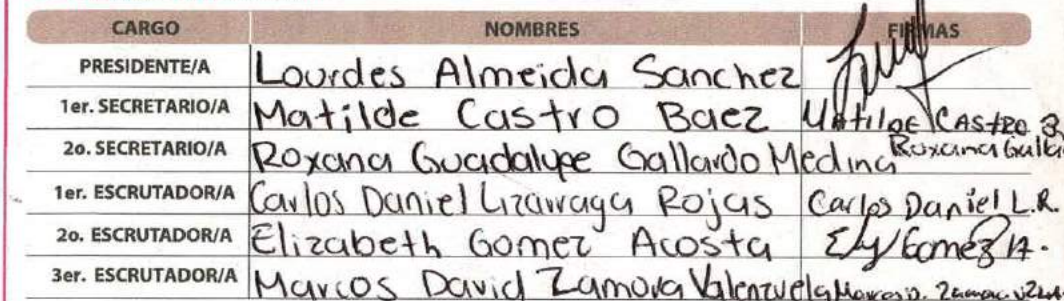 CARGO NOMBRES FIRMAS
PRESIDENTE/A Lourdes Almeida Sanchez
1er. SECRETARIO/A Matilde Castro Baez Matilde CASTRO B
2o. SECRETARIO/A Roxana Guadalupe Gallardo Medina Roxana
1er. ESCRUTADOR/A Carlos Daniel Lizarraga Rojas Carlos Daniel L.R.
2o. ESCRUTADOR/A Elizabeth Gomez Acosta Ely Gomez A.
3er. ESCRUTADOR/A Marcos David Zamora Valenzuela